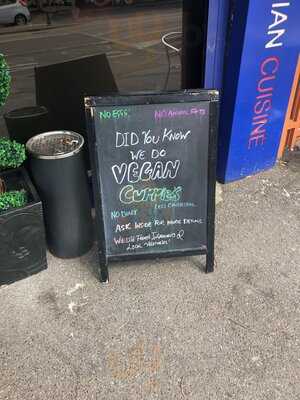 NO EGGS. NO ANIMAL FATS
DID YOU KNOW
WE DO
VEGAN
CURRIES
NO DAIRY LESS CHOLESTEROL
ASK INSIDE FOR MORE DETAILS
WELSH FRESH INGREDIENTS &
LOCAL
IAN CUISINE